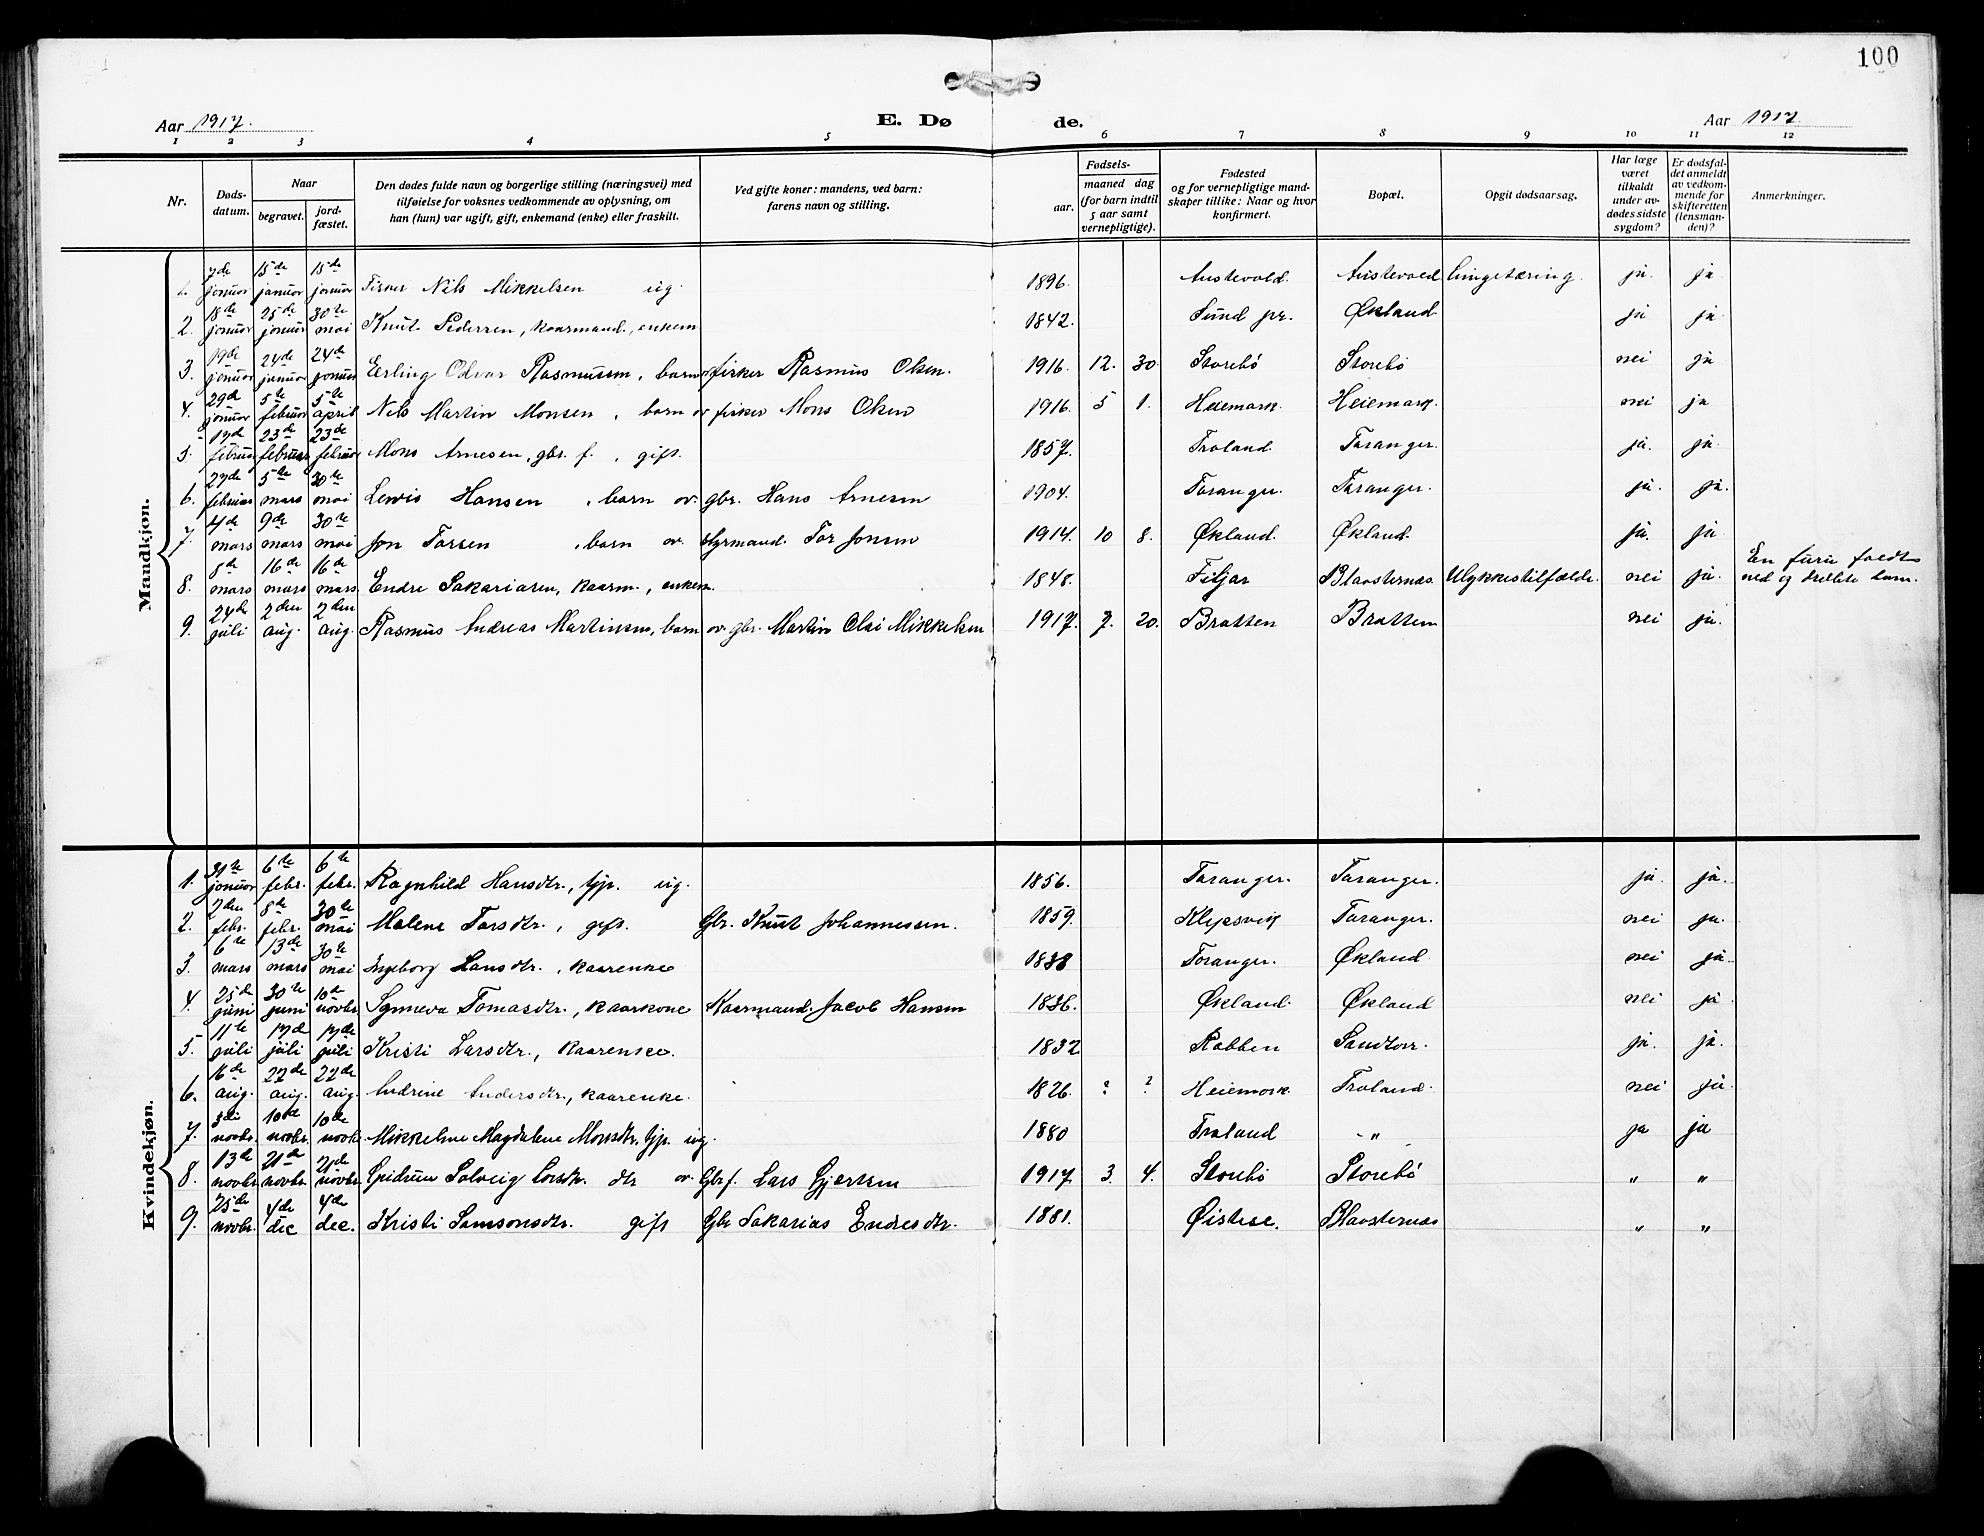 100
Aar 1917. E. Dø de. Aar 1917.
1 2 3 4 5 6 7 8 9 10 11 12
Nr. Døds-datum. Naar begravet. jord-fæstet. Den dødes fulde navn og borgerlige stilling (næringsvei) med tilføielse for voksnes vedkommende av oplysning, om han (hun) var ugift, gift, enkemand (enke) eller fraskilt. Ved gifte koner: mandens, ved barn: farens navn og stilling. Fødsels- aar. maaned dag (for barn indtil 5 aar samt vernepligtige). Fødested og for vernepligtige mand-skaper tillike: Naar og hvor konfirmert. Bopæl. Opgit dødsaarsag. Har læge været tilkaldt under av-dødes sidste sygdom? Er dødsfal-det anmeldt av vedkom-mende for skifteretten (lensman-den)? Anmerkninger.
Mandkjøn.
1. 7de januar 15de januar 15de januar Fisker Nils Mikkelsen ug. 1896. Austevold. Austevold lungetæring. ja. ja
2. 18de januar 25de januar 30te mai Knut Pedersen, kaarmand, enkem 1842. Sund pr. Økland ja ja
3. 19de januar 24de januar 24de januar Erling Odvar Rasmussen, barn av fisker Rasmus Olsen. 1916. 12. 30. Storebö Storebö nei ja
4. 29de januar 5te februar 5te april Nils Martin Monsen, barn av fisker Mons Olsen 1916. 5 1. Heiemark. Heiemark. nei ja
5. 17de februar 23de februar 23de februar Mons Arnesen, gbr. f., gift. 1857. Troland Taranger. ja. ja
6. 27de februar 5te mars 30te mai Lewis Hansen, barn av. gbr. Hans Arnesen 1904. Taranger. Taranger. ja. ja.
7. 4de mars 9de mars 30te mai Jon Torsen, barn av. Styrmand. Tor Jonsen 1914. 10 8. Økland. Økland. ja. ja.
8. 8de mars 16de mars 16de mars Endre Sakariasen, kaarm., enkem. 1848. Fitjar Blaasternæs. Ulykkestilfælde. nei ja. En furu faldt ned og dræbte ham.
9. 24de juli 2den aug. 2den aug. Rasmus Andreas Martinsen, barn av gbr. Martin Olai Mikkelsen 1917. 7. 20. Bratten Bratten nei ja.
Kvindekjøn.
1. 31te januar 6te febr. 6te febr. Ragnhild Hansdtr., tjp. ug. 1856. Taranger. Taranger. ja. ja.
2. 2den febr. 8de febr. 30te mai Malene Torsdtr., gift. Gbr. Knut Johannessen. 1859. Klepsvig Taranger. nei ja.
3. 6te mars 13de mars 30te mai Ingeborg Larsdtr., kaarenke 1838 Taranger. Økland nei ja.
4. 25de juni 30te juni 10de novbr. Synneva Tomasdtr., kaarkone Kaarmand. Jacob Hansen 1836. Økland. Økland nei ja
5. 11te juli 17de juli 17de juli Kristi Larsdtr., kaarenke. 1832 Rabben Sandtorr. ja. ja.
6. 16de aug. 22de aug. 22de aug. Andrine Andersdtr., kaarenke. 1826. ? ? Heiemark. Troland. nei ja
7. 3die novbr. 10de novbr. 10de novbr. Mikkeline Magdalene Monsdtr. tjp. ug. 1880 Troland - " ja ja
8. 13de novbr. 21de novbr. 21de novbr. Gudrun Solveig Larsdtr. dtr av Gbrf. Lars Gjertsen 1917. 3. 4. Storebö Storebö " "
9. 25de novbr. 4de dec 4de dec. Kristi Samsonsdtr. gift Gbr Sakarias Endresdtr. 1881. Øistese. Blaasternæs " "